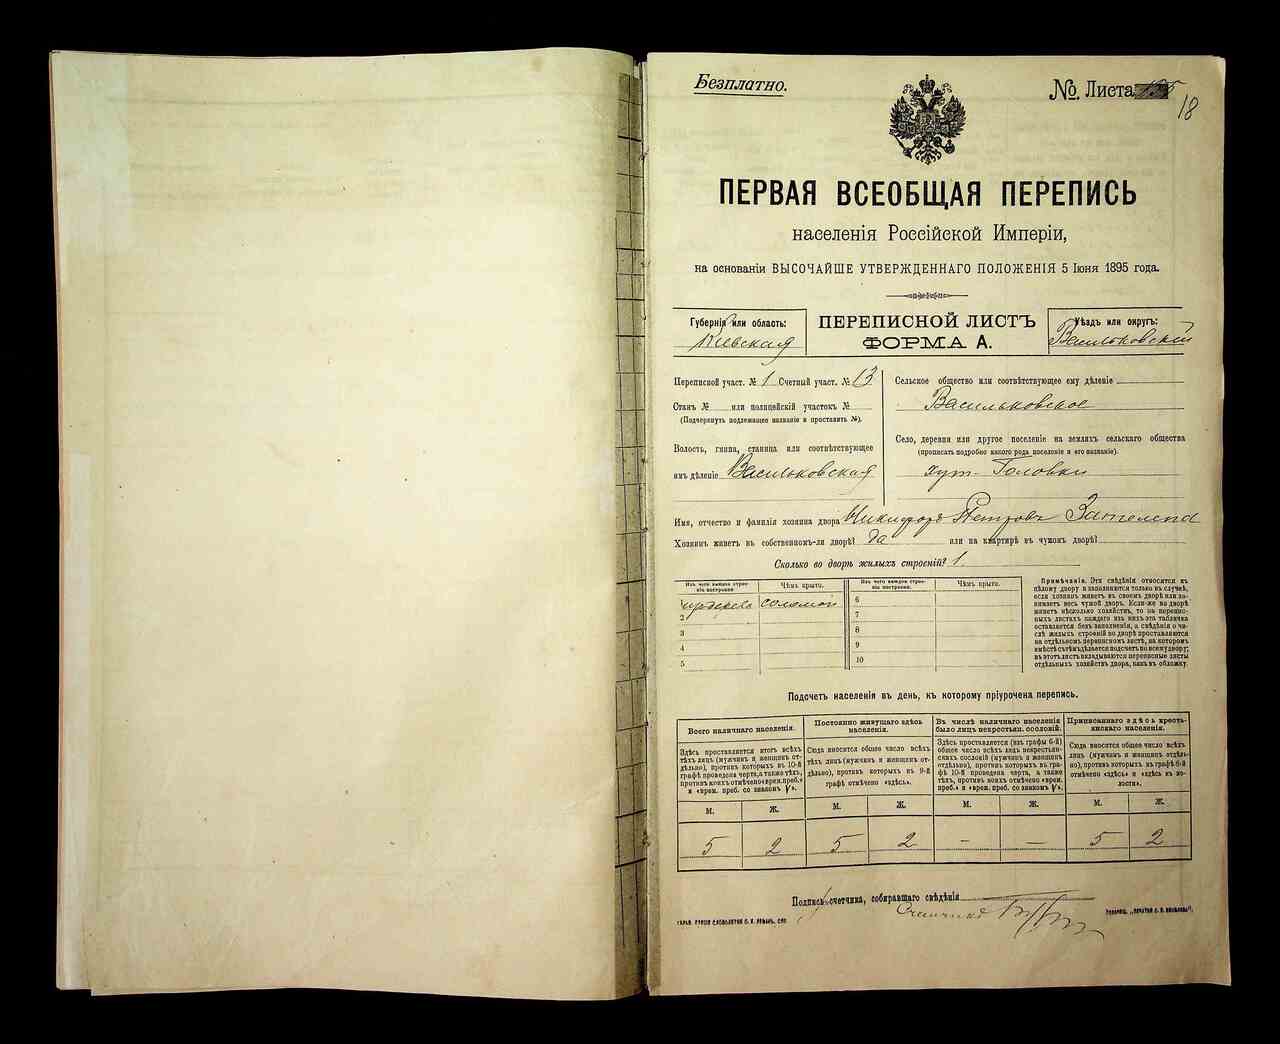 Безплатно.
№ Листа
18
ПЕРВАЯ ВСЕОБЩАЯ ПЕРЕПИСЬ
населенія Россійской Имперіи,
на основаніи ВЫСОЧАЙШЕ УТВЕРЖДЕННАГО ПОЛОЖЕНІЯ 5 Іюня 1895 года.
Губернія или область:
Кіевская
ПЕРЕПИСНОЙ ЛИСТЪ
ФОРМА А.
Уѣздъ или округъ:
Васильковскій
Переписной участ. № 1 Счетный участ. № 13
Станъ № или полицейскій участокъ №
(Подчеркнуть подлежащее названіе и проставить №).
Волость, гмина, станица или соотвѣтствующее
имъ дѣленіе Васильковская
Сельское общество или соотвѣтствующее ему дѣленіе
Васильковское
Село, деревня или другое поселеніе на земляхъ сельскаго общества
(прописать подробно какого рода поселеніе и его названіе).
хут. Головки
Имя, отчество и фамилія хозяина двора Никифоръ Петровъ
Хозяинъ живетъ въ собственномъ-ли дворѣ? да или на квартирѣ въ чужомъ дворѣ?
Сколько во дворѣ жилыхъ строеній? 1.
Изъ чего каждое строеніе построено
Чѣмъ крыто.
Изъ чего каждое строеніе построено
Чѣмъ крыто.
1 дерева соломой
2
3
4
5
6
7
8
9
10
Примѣчаніе. Эти свѣдѣнія относятся къ
цѣлому двору и заполняются только въ случаѣ,
если хозяинъ живетъ въ своемъ дворѣ или занимаетъ весь чужой дворъ. Если-же во дворѣ
живетъ нѣсколько хозяйствъ, то на переписныхъ листахъ каждаго изъ нихъ эта табличка
оставляется безъ заполненія, а свѣдѣнія о числѣ жилыхъ строеній во дворѣ проставляются
на отдѣльномъ переписномъ листѣ, на которомъ
вмѣстѣ съ тѣмъ дѣлается подсчетъ по всему двору;
въ этотъ листъ вкладываются переписные листы
отдѣльныхъ хозяйствъ двора, какъ въ обложку.
Подсчетъ населенія въ день, къ которому пріурочена перепись.
Всего наличнаго населенія.
Здѣсь проставляется итогъ всѣхъ
тѣхъ лицъ (мужчинъ и женщинъ отдѣльно), противъ которыхъ въ 10-й
графѣ проведена черта, а также тѣхъ,
противъ коихъ отмѣчено «врем. преб.»
и «врем. преб. со знакомъ V».
Постоянно живущаго здѣсь
населенія.
Сюда вносится общее число всѣхъ
тѣхъ лицъ (мужчинъ и женщинъ отдѣльно), противъ которыхъ въ 9-й
графѣ отмѣчено «здѣсь».
Въ числѣ наличнаго населенія
было лицъ некрестьян. сословій.
Здѣсь проставляется (изъ графы 6-й)
общее число всѣхъ лицъ некрестьянскихъ сословій (мужчинъ и женщинъ
отдѣльно), противъ которыхъ въ графѣ 10-й проведена черта, а также
тѣхъ, противъ коихъ отмѣчено «врем.
преб.» и «врем. преб. со знакомъ V».
Приписаннаго здѣсь крестьянскаго населенія.
Сюда вносится общее число всѣхъ
лицъ (мужчинъ и женщинъ отдѣльно), противъ которыхъ въ графѣ 6-й
отмѣчено «здѣсь» и «здѣсь въ волости».
М. Ж. М. Ж. М. Ж. М. Ж.
5 2 5 2 — — 5 2
Подпись счетчика, собиравшаго свѣдѣнія
Счетчикъ